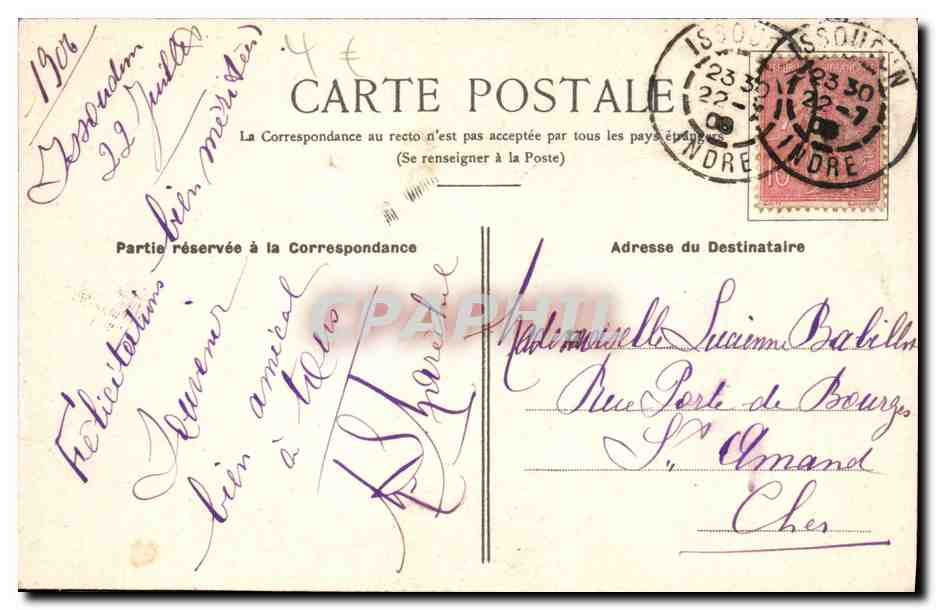 4 €
CARTE POSTALE
La Correspondance au recto n'est pas acceptée par tous les pays étrangers
(Se renseigner à la Poste)
ISSOUDUN
23 30
22-7
INDRE
ISSOUDUN
23 30
22-7
INDRE
10
Partie réservée à la Correspondance
1906
Issoudun
22 Juillet
Félicitations bien méritées)
Souvenir
bien amical
à tous
CPAPHIL
Adresse du Destinataire
Mademoiselle Lucienne Babillot
Rue Porte de Bourges
St Amand
Cher